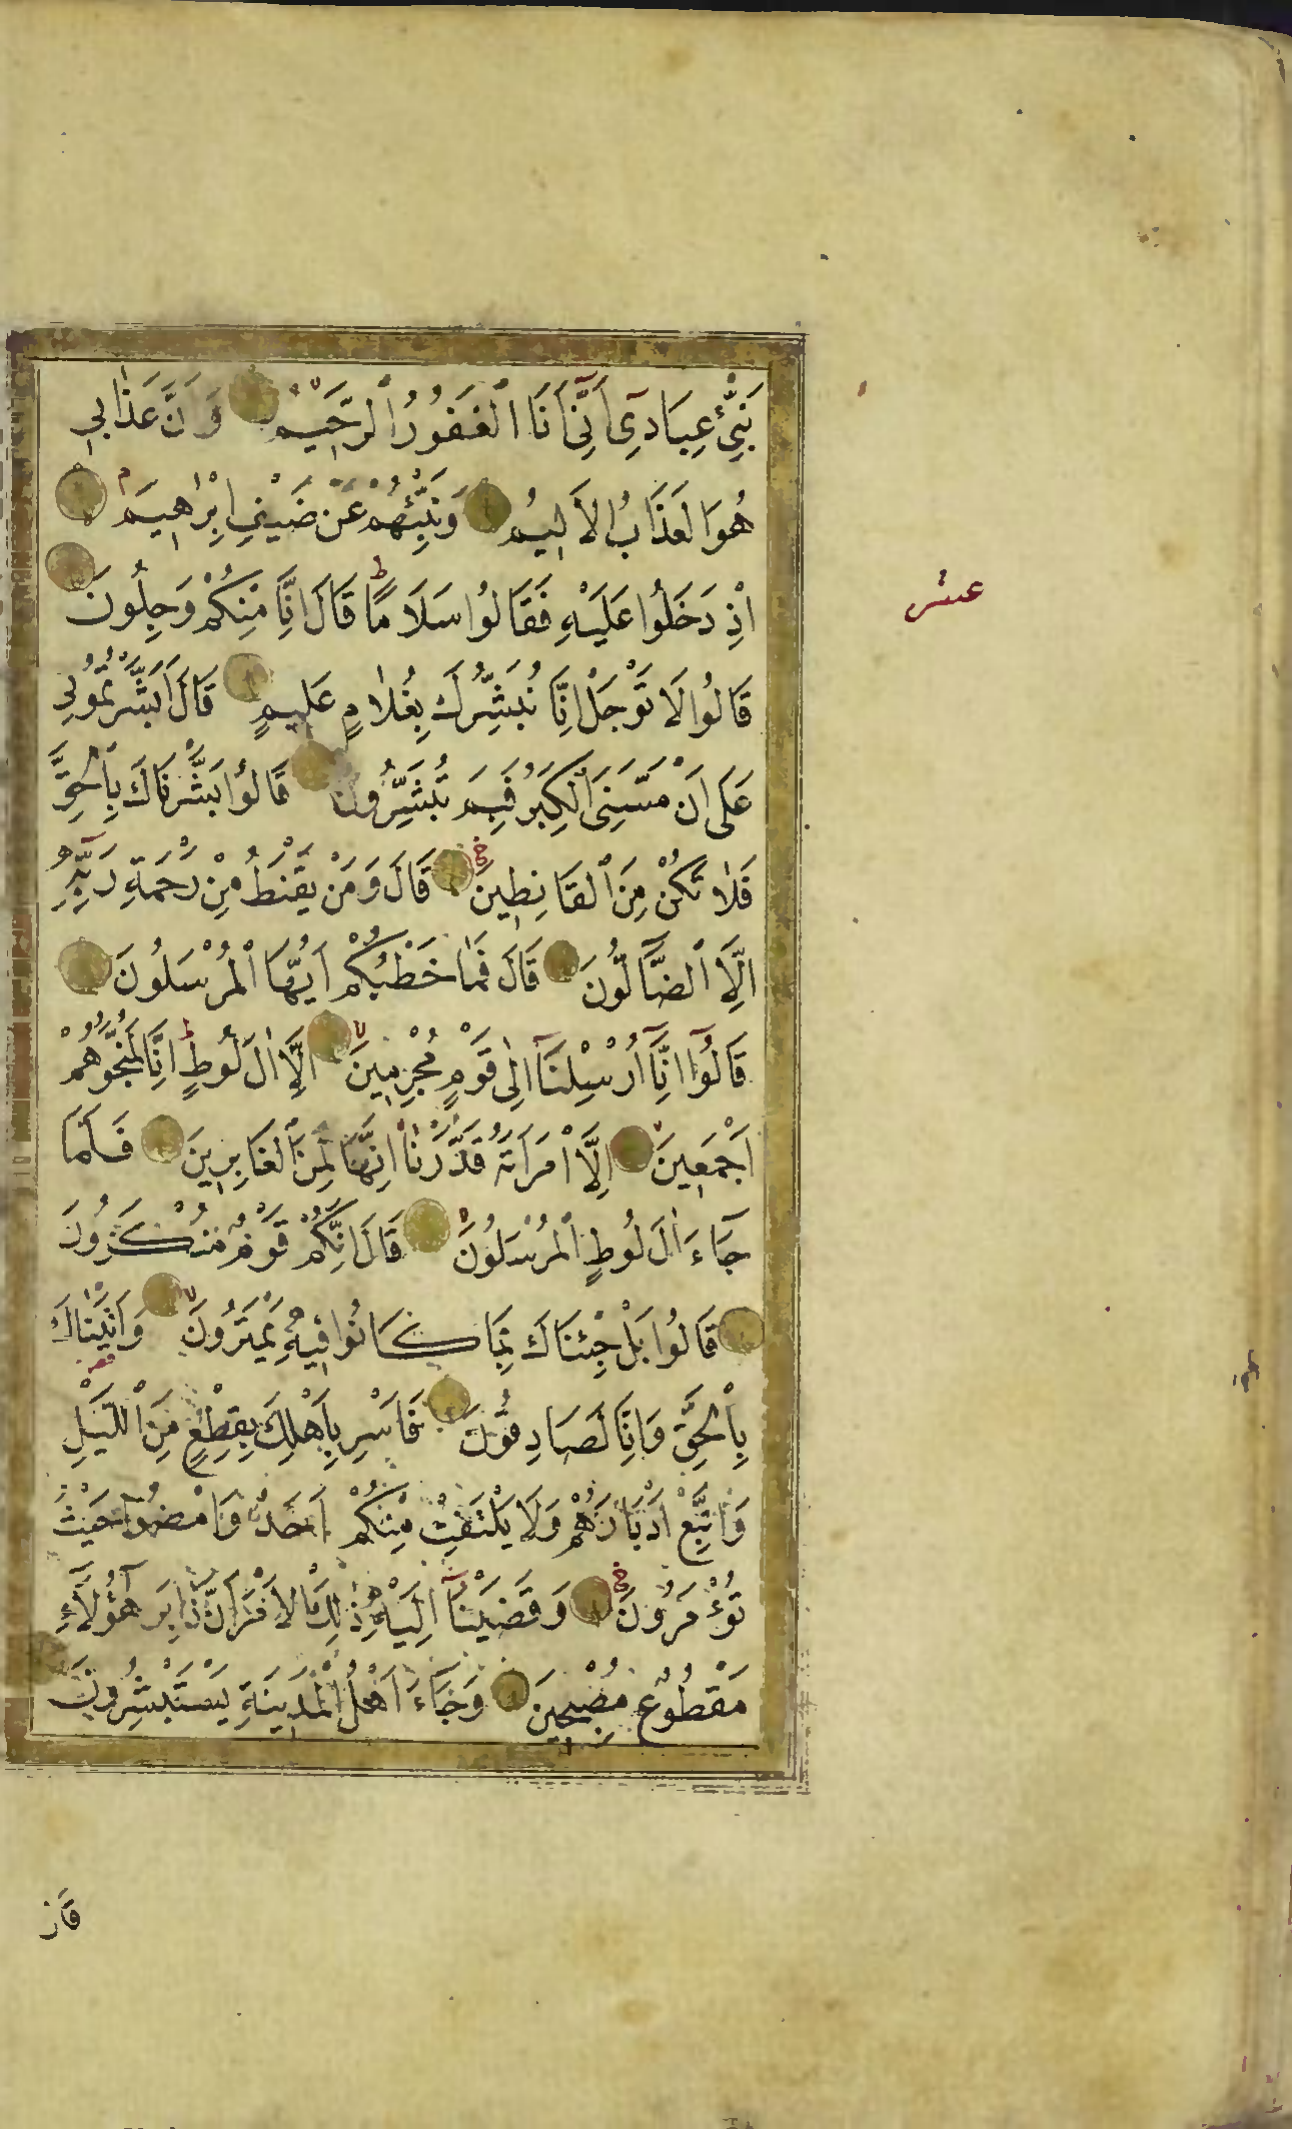 نَبِّئْ عِبَادِي أَنِّي أَنَا الْغَفُورُ الرَّحِيمُ وَأَنَّ عَذَابِي
هُوَ الْعَذَابُ الْأَلِيمُ وَنَبِّئْهُمْ عَنْ ضَيْفِ إِبْرَاهِيمَ
إِذْ دَخَلُوا عَلَيْهِ فَقَالُوا سَلَامًا قَالَ إِنَّا مِنْكُمْ وَجِلُونَ
عشر
قَالُوا لَا تَوْجَلْ إِنَّا نُبَشِّرُكَ بِغُلَامٍ عَلِيمٍ قَالَ أَبَشَّرْتُمُونِي
عَلَى أَنْ مَسَّنِيَ الْكِبَرُ فَبِمَ تُبَشِّرُونَ قَالُوا بَشَّرْنَاكَ بِالْحَقِّ
فَلَا تَكُنْ مِنَ الْقَانِطِينَ قَالَ وَمَنْ يَقْنَطُ مِنْ رَحْمَةِ رَبِّهِ
إِلَّا الضَّالُّونَ قَالَ فَمَا خَطْبُكُمْ أَيُّهَا الْمُرْسَلُونَ
قَالُوا إِنَّا أُرْسِلْنَا إِلَى قَوْمٍ مُجْرِمِينَ إِلَّا آلَ لُوطٍ إِنَّا لَمُنَجُّوهُمْ
أَجْمَعِينَ إِلَّا امْرَأَتَهُ قَدَّرْنَا إِنَّهَا لَمِنَ الْغَابِرِينَ فَلَمَّا
جَاءَ آلَ لُوطٍ الْمُرْسَلُونَ قَالَ إِنَّكُمْ قَوْمٌ مُنْكَرُونَ
قَالُوا بَلْ جِئْنَاكَ بِمَا كَانُوا فِيهِ يَمْتَرُونَ وَأَتَيْنَاكَ
بِالْحَقِّ وَإِنَّا لَصَادِقُونَ فَأَسْرِ بِأَهْلِكَ بِقِطْعٍ مِنَ اللَّيْلِ
وَاتَّبِعْ أَدْبَارَهُمْ وَلَا يَلْتَفِتْ مِنْكُمْ أَحَدٌ وَامْضُوا حَيْثُ
تُؤْمَرُونَ وَقَضَيْنَا إِلَيْهِ ذَلِكَ الْأَمْرَ أَنَّ دَابِرَ هَؤُلَاءِ
مَقْطُوعٌ مُصْبِحِينَ وَجَاءَ أَهْلُ الْمَدِينَةِ يَسْتَبْشِرُونَ
قَالَ